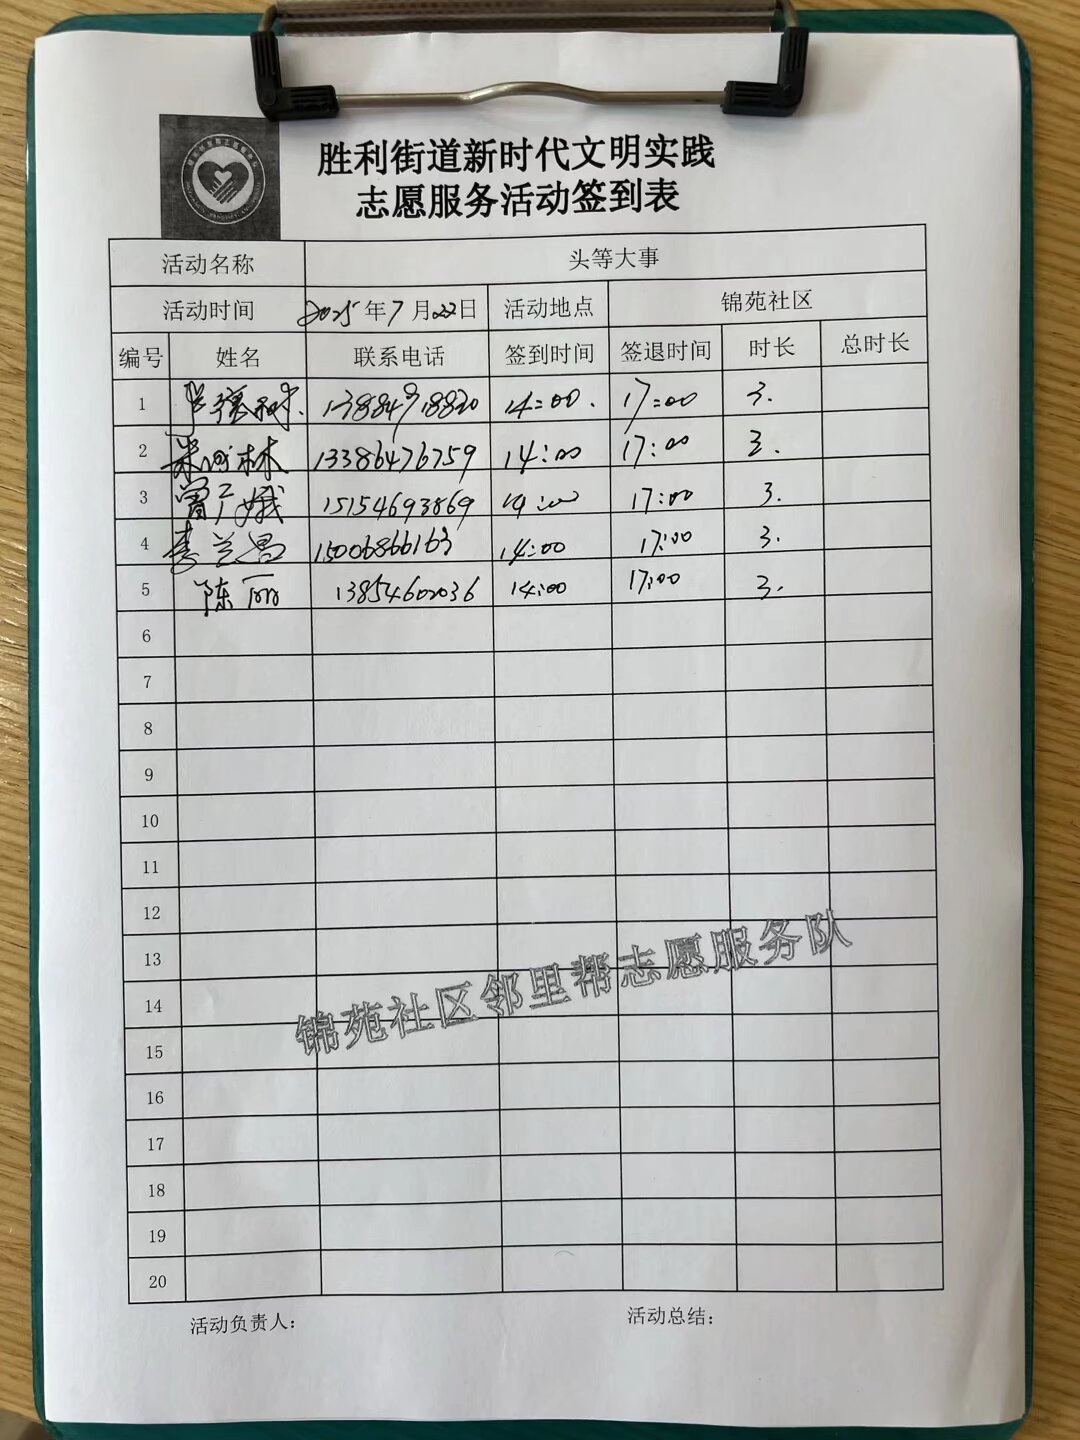 胜利街道新时代文明实践
志愿服务活动签到表
活动名称 头等大事
活动时间 2025年7月22日 活动地点 锦苑社区
编号 姓名 联系电话 签到时间 签退时间 时长 总时长
1 13884918820 14:00. 17:00 3.
2 林 13386476759 14:00 17:00 3.
3 曾广娥 15154693869 14:00 17:00 3.
4 李兰昌 15006866163 14:00 17:00 3.
5 陈丽 13854602036 14:00 17:00 3.
6
7
8
9
10
11
12
13
14
15
16
17
18
19
20
锦苑社区邻里帮志愿服务队
活动负责人: 活动总结: